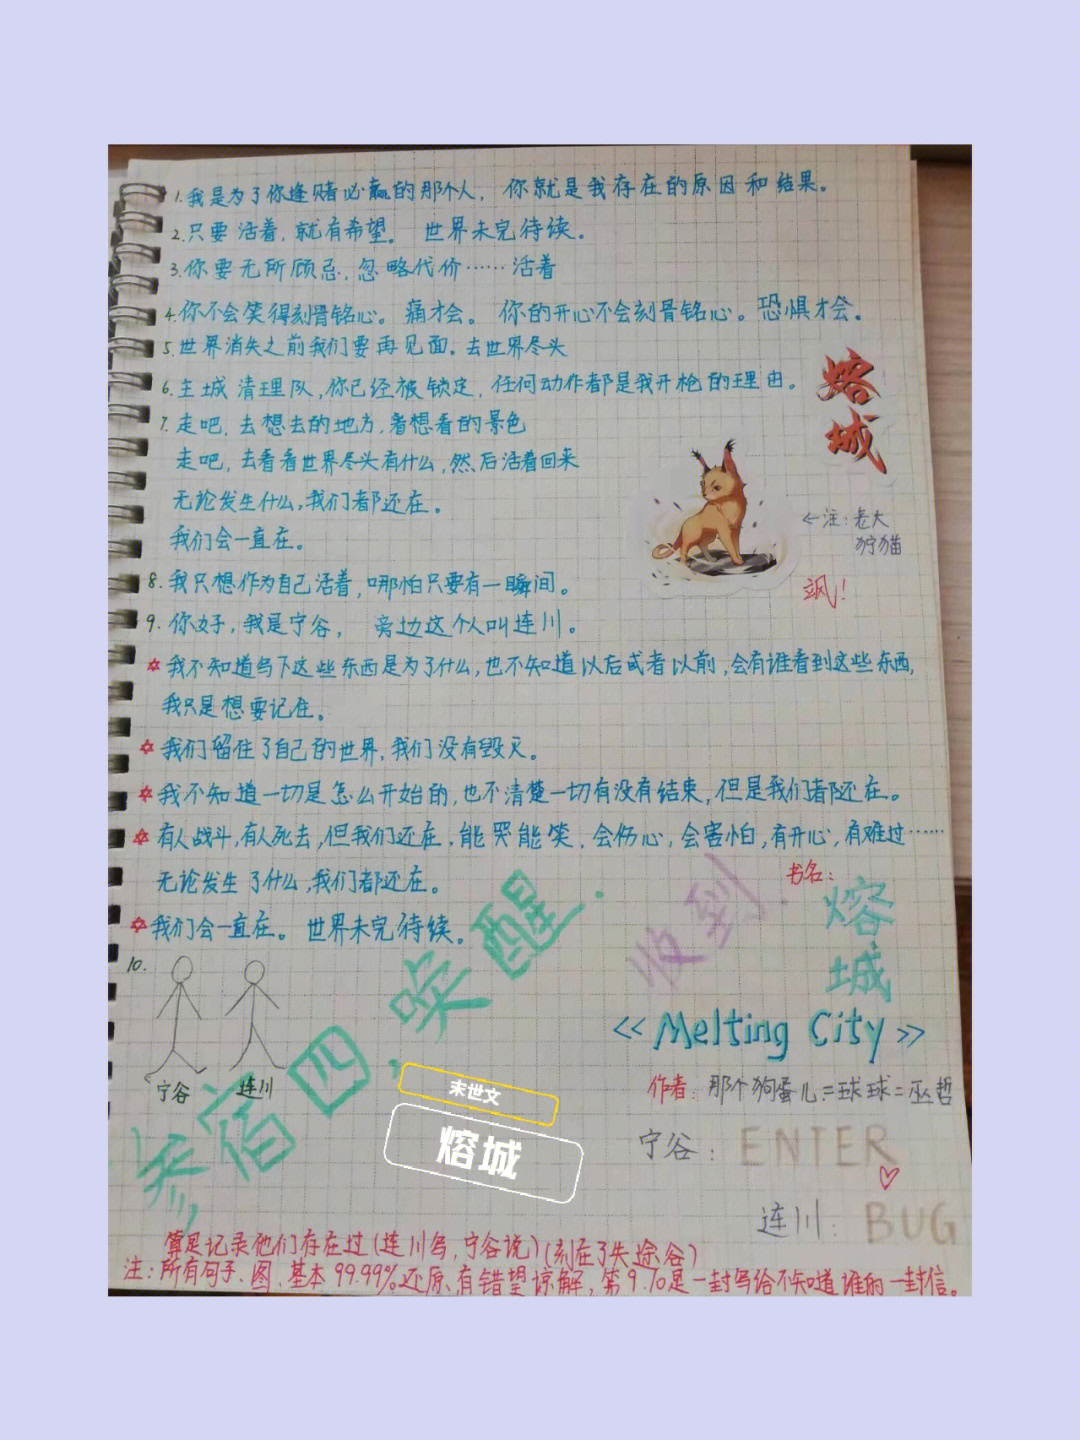 1.我是为了你逢赌必赢的那个人，你就是我存在的原因和结果。
2.只要活着，就有希望。世界未完待续。
3.你要无所顾忌，忽略代价……活着
4.你不会笑得刻骨铭心。痛才会。你的开心不会刻骨铭心。恐惧才会。
5.世界消失之前我们要再见面。去世界尽头
6.主城清理队，你已经被锁定，任何动作都是我开枪的理由。
熔城
7.走吧，去想去的地方，看想看的景色
走吧，去看看世界尽头有什么，然后活着回来
无论发生什么，我们都还在。
←注：老大
狞猫
我们会一直在。
飒！
8.我只想作为自己活着，哪怕只要有一瞬间。
9.你好，我是宁谷，旁边这个人叫连川。
我不知道写下这些东西是为了什么，也不知道以后或者以前，会有谁看到这些东西，
我只是想要记住。
我们留住了自己的世界，我们没有毁灭。
我不知道一切是怎么开始的，也不清楚一切有没有结束，但是我们都还在。
有人战斗，有人死去，但我们还在，能哭能笑，会伤心，会害怕，有开心，有难过……
无论发生了什么，我们都还在。
我们会一直在。世界未完待续。
10.
宁谷 连川
参宿四，唤醒.
收到.
书名：
熔城
<<Melting City>>
作者：那个狗蛋儿=球球=巫哲
末世文
熔城
宁谷：ENTER
连川：BUG
算是记录他们存在过(连川写，宁谷说)(刻在了失途谷)
注：所有句子、图，基本99.99%还原，有错望谅解，第9.10是一封写给不知道谁的一封信。